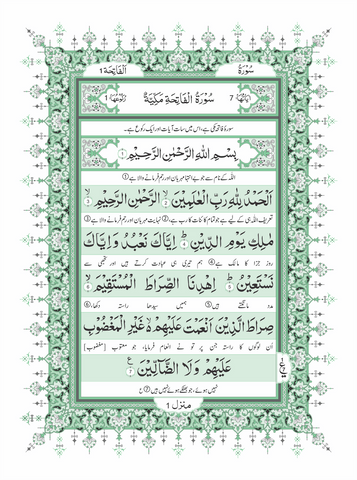 سُوْرَةُ اَلْفَاتِحَة 1
اٰيَاتُهَا 7 سُوْرَةُ الْفَاتِحَةِ مَكِّيَّةٌ رُكُوْعُهَا 1
سورۂ فاتحہ مکی ہے، اس میں سات آیات اور ایک رکوع ہے۔
بِسْمِ اللّٰهِ الرَّحْمٰنِ الرَّحِيْمِ ۝۱
اللہ کے نام سے جو بے انتہا مہربان اور رحم فرمانے والا ہے ①
اَلْحَمْدُ لِلّٰهِ رَبِّ الْعٰلَمِيْنَ ۝۲ الرَّحْمٰنِ الرَّحِيْمِ ۝۳
تعریف اللہ ہی کے لیے ہے جو تمام کائنات کا رب ہے، ② نہایت مہربان اور رحم فرمانے والا ہے ③
مٰلِكِ يَوْمِ الدِّيْنِ ۝۴ اِيَّاكَ نَعْبُدُ وَاِيَّاكَ
روز جزا کا مالک ہے ④ ہم تیری ہی عبادت کرتے ہیں اور تجھی سے
نَسْتَعِيْنُ ۝۵ اِهْدِنَا الصِّرَاطَ الْمُسْتَقِيْمَ ۝۶
مدد مانگتے ہیں ⑤ ہمیں سیدھا راستہ دکھا، ⑥
صِرَاطَ الَّذِيْنَ اَنْعَمْتَ عَلَيْهِمْ غَيْرِ الْمَغْضُوْبِ
اُن لوگوں کا راستہ جن پر تو نے انعام فرمایا، جو معتوب [مغضوب]
عَلَيْهِمْ وَلَا الضَّآلِّيْنَ ۝۷
نہیں ہوئے، جو بھٹکے ہوئے نہیں ہیں ⑦
منزل 1